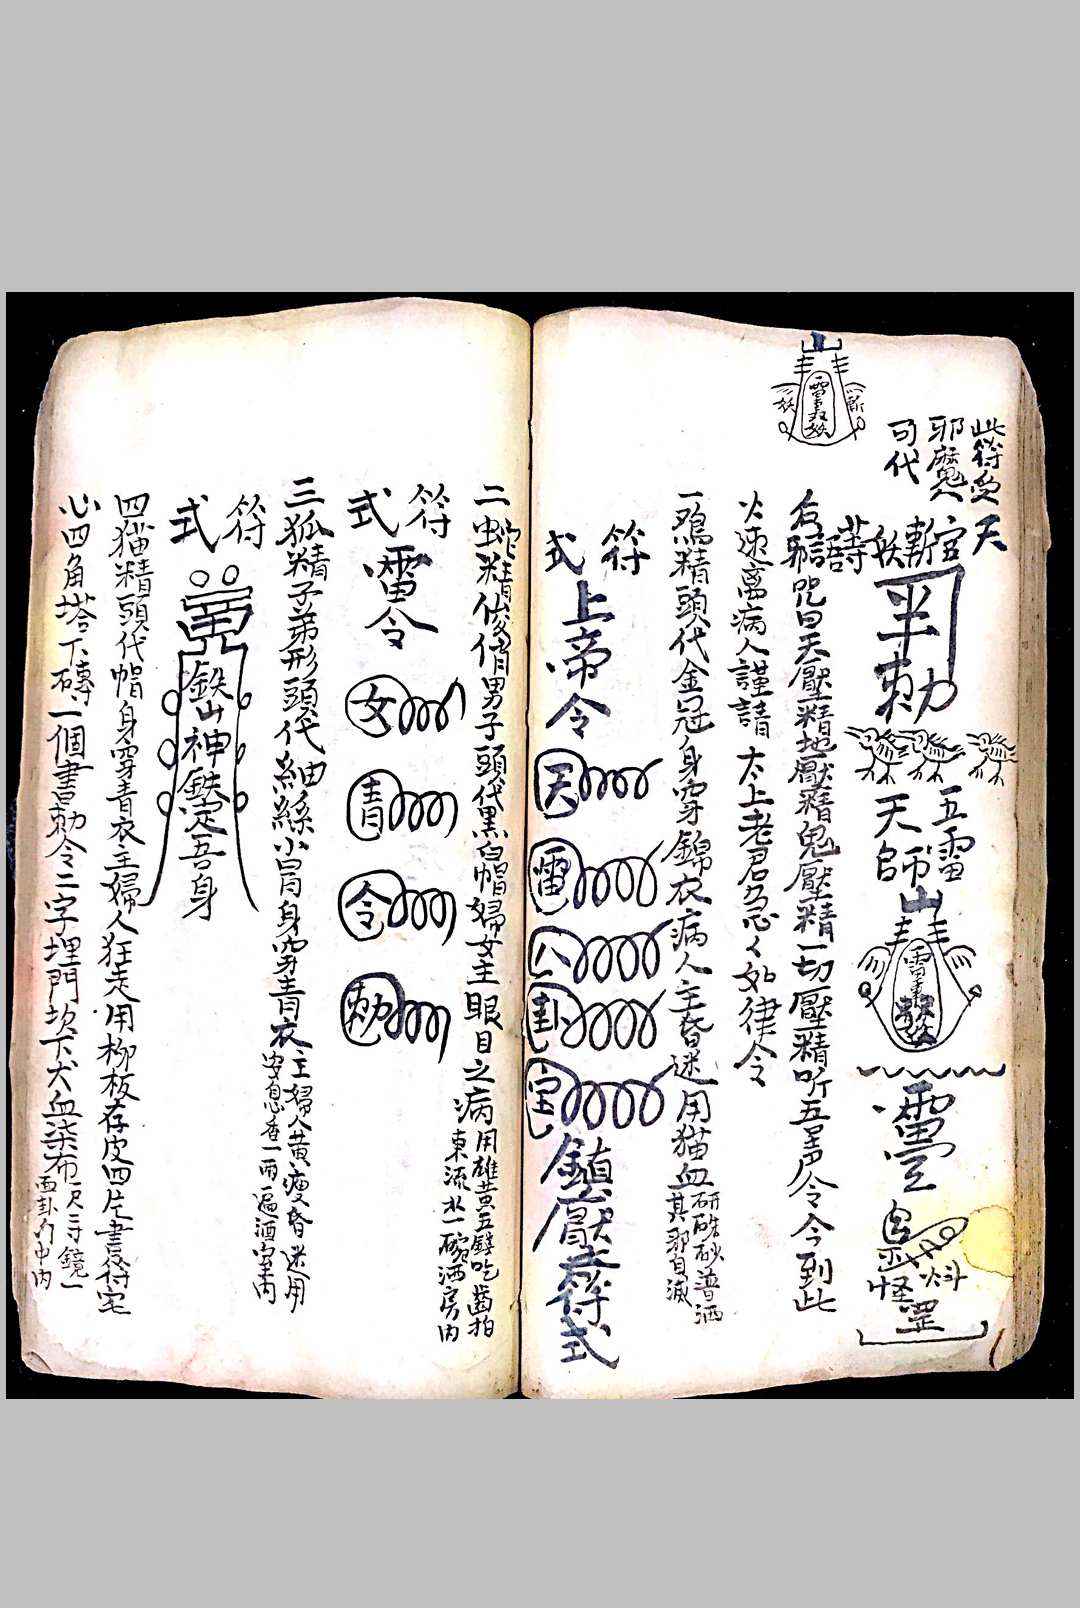 此符受
邪魔人
可代
天
官斬妖
敕
五雷
天師
山
靈
怪
罡
右語咒曰天壓精地壓精鬼壓精一切壓精听五雷令令到此
火速离病人謹請太上老君急く如律令
一鷄精頭代金冠身穿錦衣病人主昏迷用猫血研硃砂普洒
其邪自滅
符
式
上帝令
天
雷
八
卦
定
鎮壓符式
二蛇精俊俏男子頭代黑帽婦女主眼目之病用雄黄五錢吃
東流水一碗洒房内
符
式
雷令
女
青
令
勅
三狐精子弟形頭代紬絲小冐身穿青衣主婦人黄瘦昏迷用
安息香一兩遍洒室内
符
式
鉄山神鉄定吾身
四猫精頭代帽身穿青衣主婦人狂走用柳板存皮四片書符宅
心四角塔下磚一個書勅令二字埋門坎下犬血柒布一尺三寸鏡一
面卦門中内